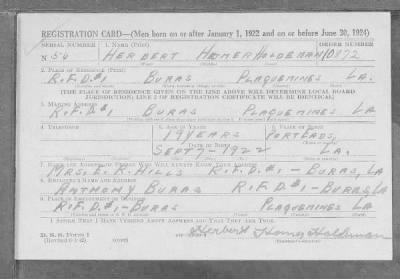 REGISTRATION CARD—(Men born on or after January 1, 1922 and on or before June 30, 1924)
SERIAL NUMBER 1. NAME (Print) ORDER NUMBER
N 56 HERBERT HOMER HOLDEMAN 10872
2. PLACE OF RESIDENCE (Print)
R.F.D.#1 BURAS PLAQUEMINES LA.
[THE PLACE OF RESIDENCE GIVEN ON THE LINE ABOVE WILL DETERMINE LOCAL BOARD
JURISDICTION; LINE 2 OF REGISTRATION CERTIFICATE WILL BE IDENTICAL]
3. MAILING ADDRESS
R.F.D.#1 BURAS PLAQUEMINES LA
4. TELEPHONE 5. AGE IN YEARS 6. PLACE OF BIRTH
19 YEARS PORT EADS,
DATE OF BIRTH
SEPT 7-1922 LA.
7. NAME AND ADDRESS OF PERSON WHO WILL ALWAYS KNOW YOUR ADDRESS
MRS. E.R. HILLS R.F.D.#1-BURAS, LA
8. EMPLOYER'S NAME AND ADDRESS
ANTHONY BURAS R.F.D.#1-BURAS, LA
9. PLACE OF EMPLOYMENT OR BUSINESS
R.F.D.#1-BURAS PLAQUEMINES LA
I AFFIRM THAT I HAVE VERIFIED ABOVE ANSWERS AND THAT THEY ARE TRUE.
D. S. S. FORM 1
Herbert Homer Holdeman